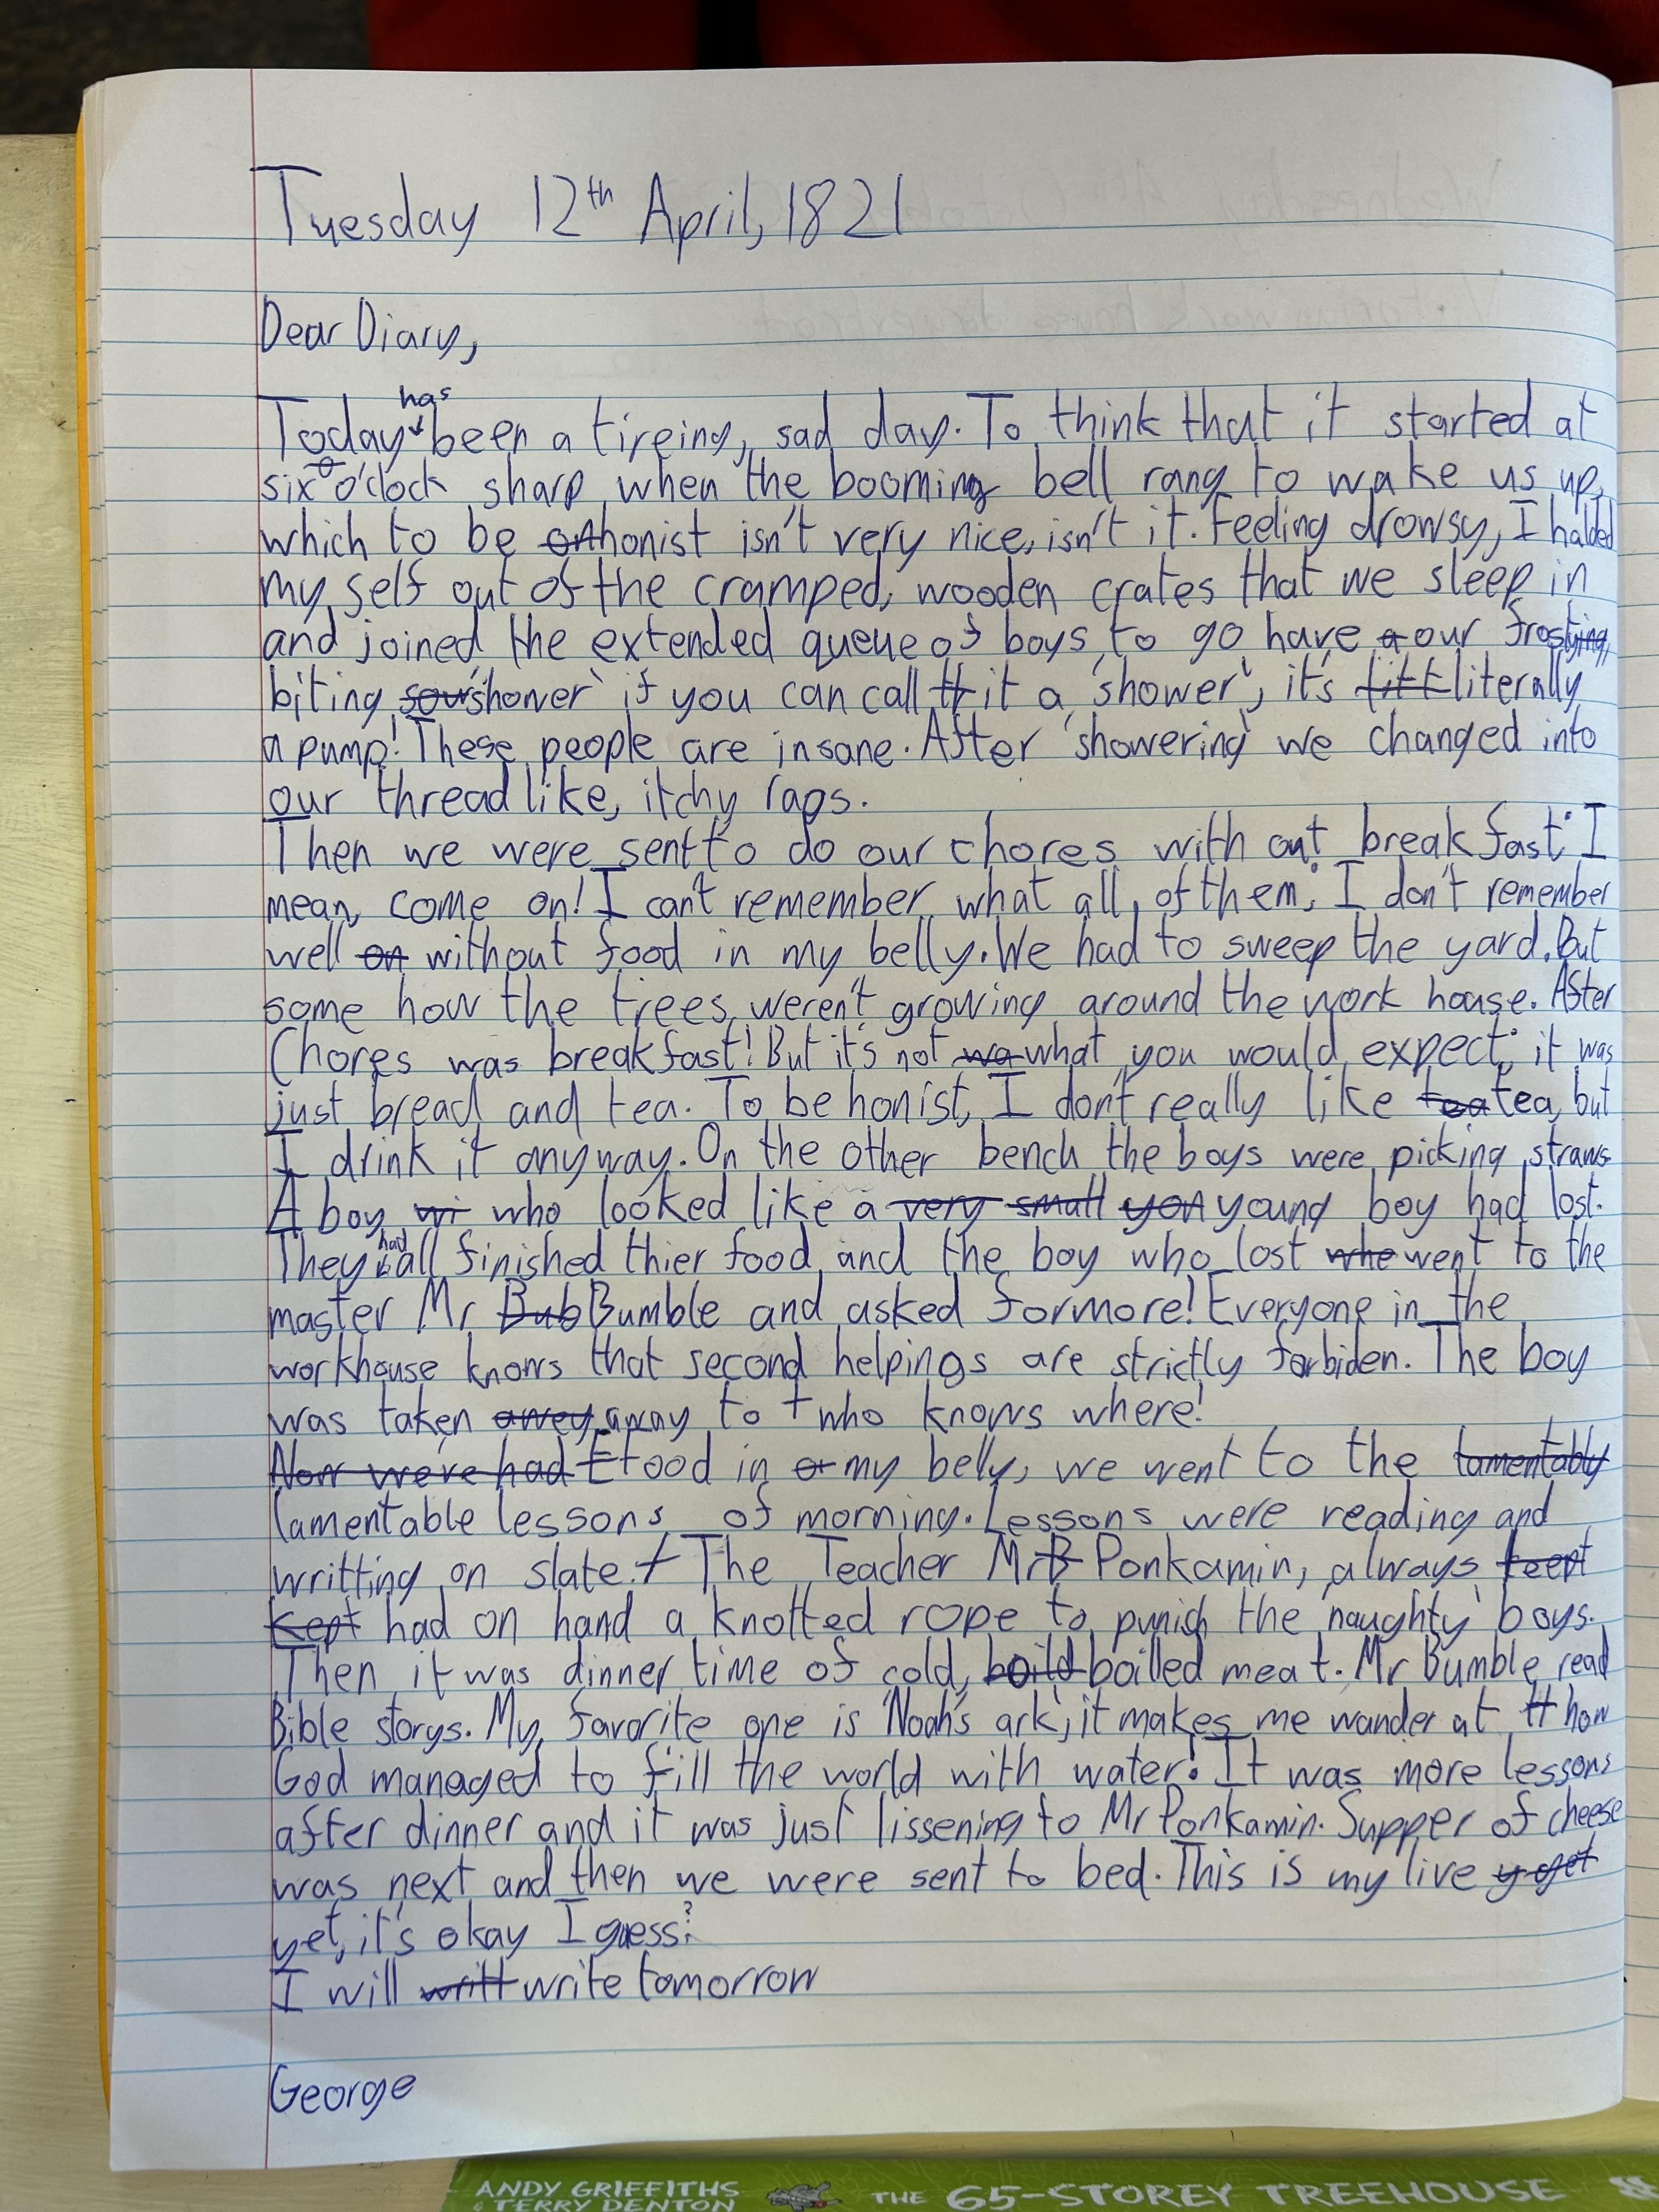 Tuesday 12th April, 1821
Dear Diary,
has
Today been a tireing, sad day. To think that it started at
six o'clock sharp when the booming bell rang to wake us up,
which to be honist isn't very nice, isn't it. Feeling drowsy, I halded
my self out of the cramped, wooden crates that we sleep in
and joined the extended queue of boys to go have our frost
biting 'shower' if you can call it a 'shower', it's literally
a pump! These people are insane. After 'showering' we changed into
our thread like, itchy rags.
Then we were sent to do our chores with out break fast; I
mean, come on! I can't remember what all of them; I don't remember
well without food in my belly. We had to sweep the yard. But
some how the trees weren't growing around the work house. After
Chores was break fast! But it's not what you would expect; it was
just bread and tea. To be honist, I don't really like tea, but
I drink it anyway. On the other bench the boys were picking straws
A boy who looked like a young boy had lost.
had
They all finished thier food and the boy who lost went to the
master Mr Bumble and asked for more! Everyone in the
workhouse knows that second helpings are strictly forbiden. The boy
was taken away to who knows where!
Food in my belly, we went to the
lamentable lessons of morning. Lessons were reading and
writting on slate. The Teacher Mr Ponkamin, always
had on hand a knotted rope to punish the 'naughty' boys.
Then it was dinner time of cold, boilled meat. Mr Bumble read
Bible storys. My favorite one is 'Noah's ark', it makes me wander at how
God managed to fill the world with water! It was more lessons
after dinner and it was just lissening to Mr Ponkamin. Supper of cheese
was next and then we were sent to bed. This is my live
yet, it's okay I guess?
I will write tomorrow
George
ANDY GRIFFITHS
& TERRY DENTON
THE 65-STOREY TREEHOUSE